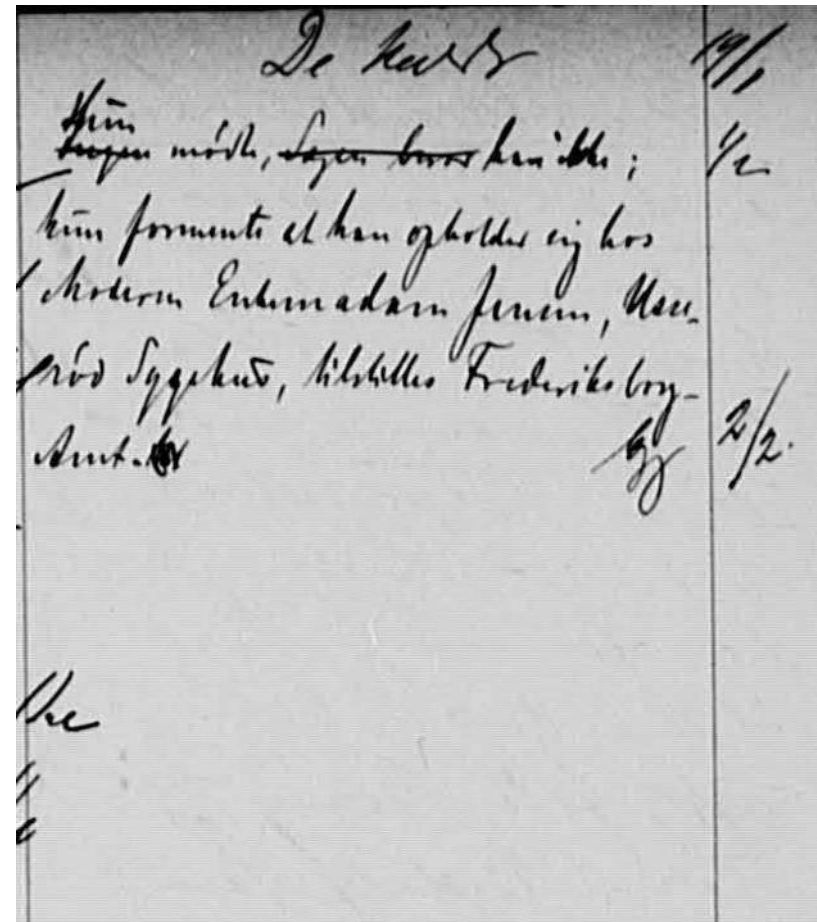 De kaldt 19/1
Hun
Ingen mødte, Sagen beror han ikke; 1/2
hun formente at han opholder sig hos
Moderen Enkemadam Jensen, Usse-
rød Sygehus, tilstilles Frederiksborg-
Amt. 2/2.